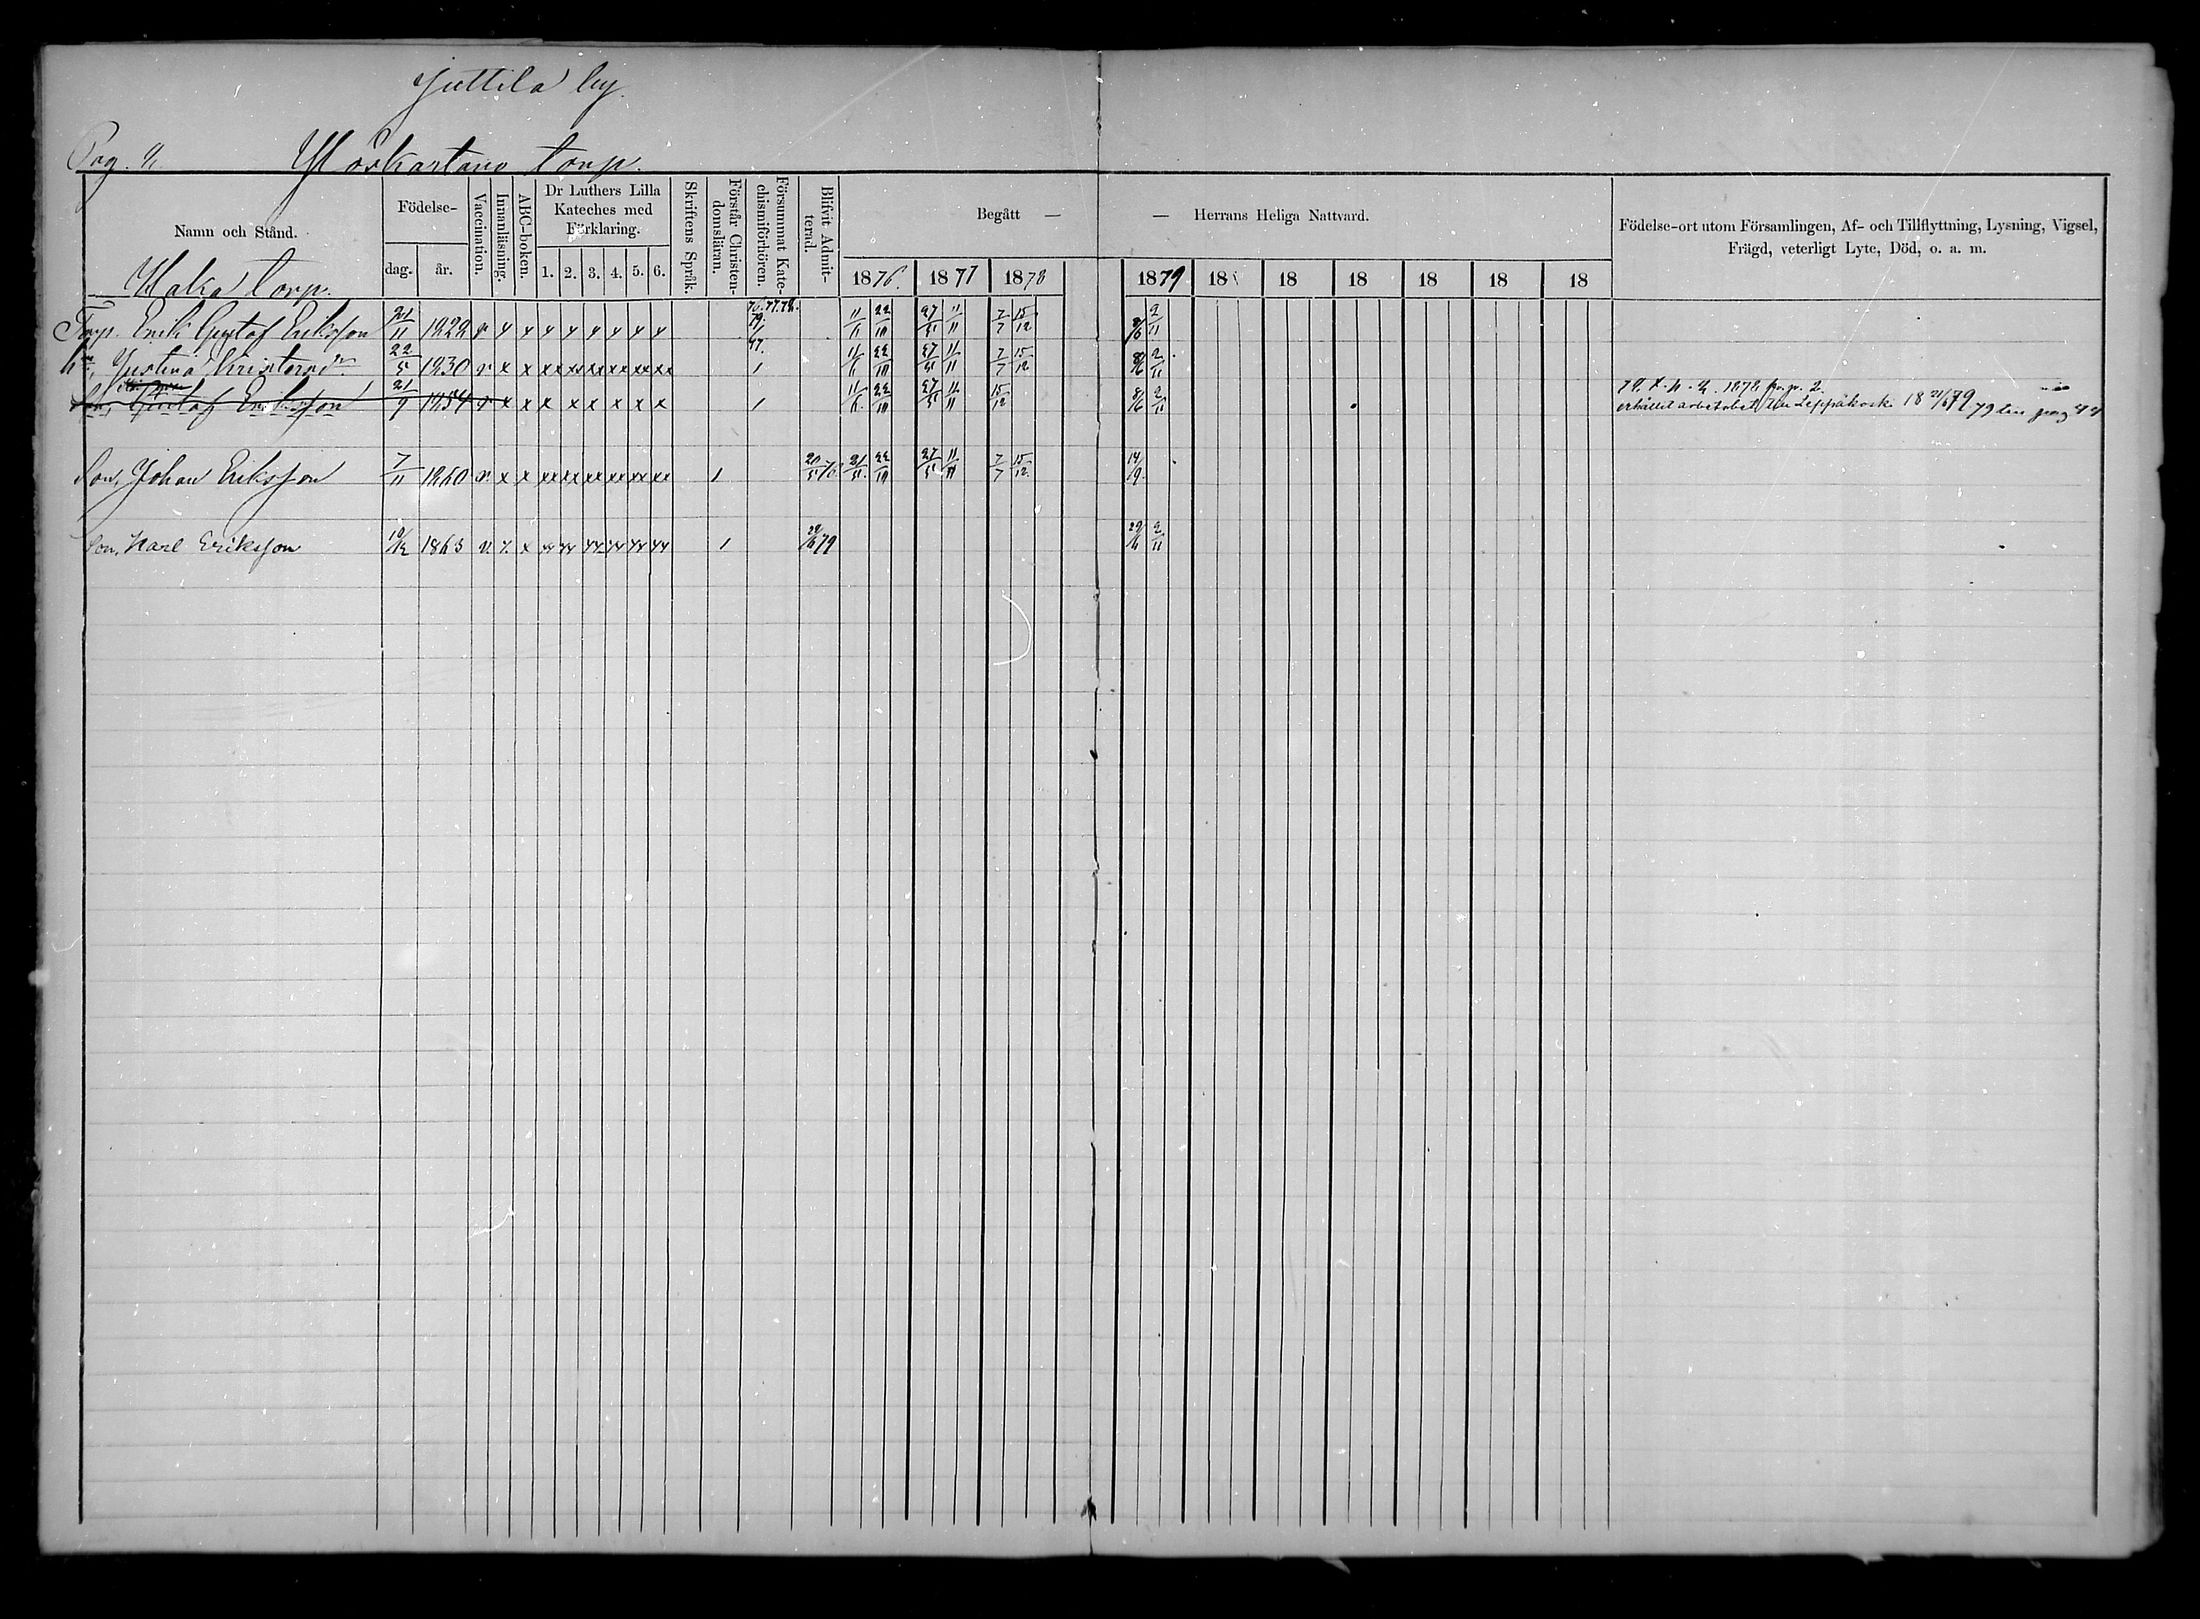 Juttila by.
Pag.
torp.
Namn och Stånd.
Födelse-
dag. år.
Vaccination.
Innanläsning.
ABC-boken.
Dr Luthers Lilla
Kateches med
Förklaring.
1. 2. 3. 4. 5. 6.
Skriftens Språk.
Förstår Christen-
domsläran.
Försummat Kate-
chismiförhören.
Blifvit Admit-
terad.
Begått — — Herrans Heliga Nattvard.
1876. 1877 1878 1879 18 18 18 18 18 18
Födelse-ort utom Församlingen, Af- och Tillflyttning, Lysning, Vigsel,
Frägd, veterligt Lyte, Död, o. a. m.
Haka torp.
76. 77. 78.
79.
Torp. Erik Gustaf Eriksson 21/11 1829 v x x x x x x x x 11/6 22/10 27/5 11/11 7/7 15/12 8/6 2/11
77.
Justina 22/5 1830 v x x xx xx xx xx xx xx 1 11/6 22/10 27/5 11/11 7/7 15/12 8/6 2/11
Son, Gustaf Eriksson 21/9 1854 v x x x x x x x x 1 11/6 22/10 27/5 11/11 15/12 8/6 2/11
erhållit arbetsbet. Leppäkoski 79 pag
Son, Johan Eriksson 7/11 1860 v. x x xx xx xx xx xx xx 1 20/5 76. 21/5 22/10 27/5 11/11 7/7 15/12 14/9
Son, Karl Eriksson 10/12 1863 v. x x xx xx xx xx xx xx 1 29/6 79 29/6 2/11